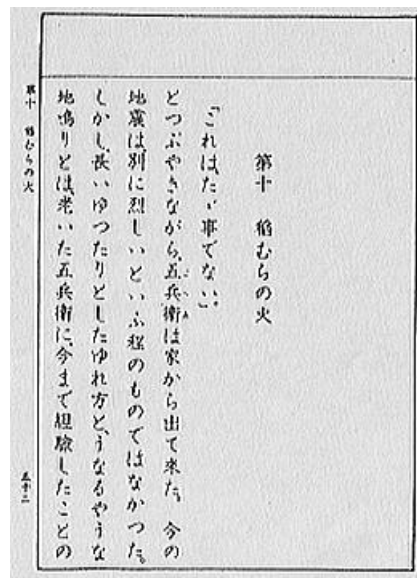 第十　稻むらの火
「これは、たゞ事でない。」
とつぶやきながら、五兵衛は家から出て來た。今の
地震は、別に烈しいといふ程のものではなかつた。
しかし、長いゆつたりとしたゆれ方と、うなるやうな
地鳴りとは、老いた五兵衛に、今まで經驗したことの
第十　稻むらの火
五十二